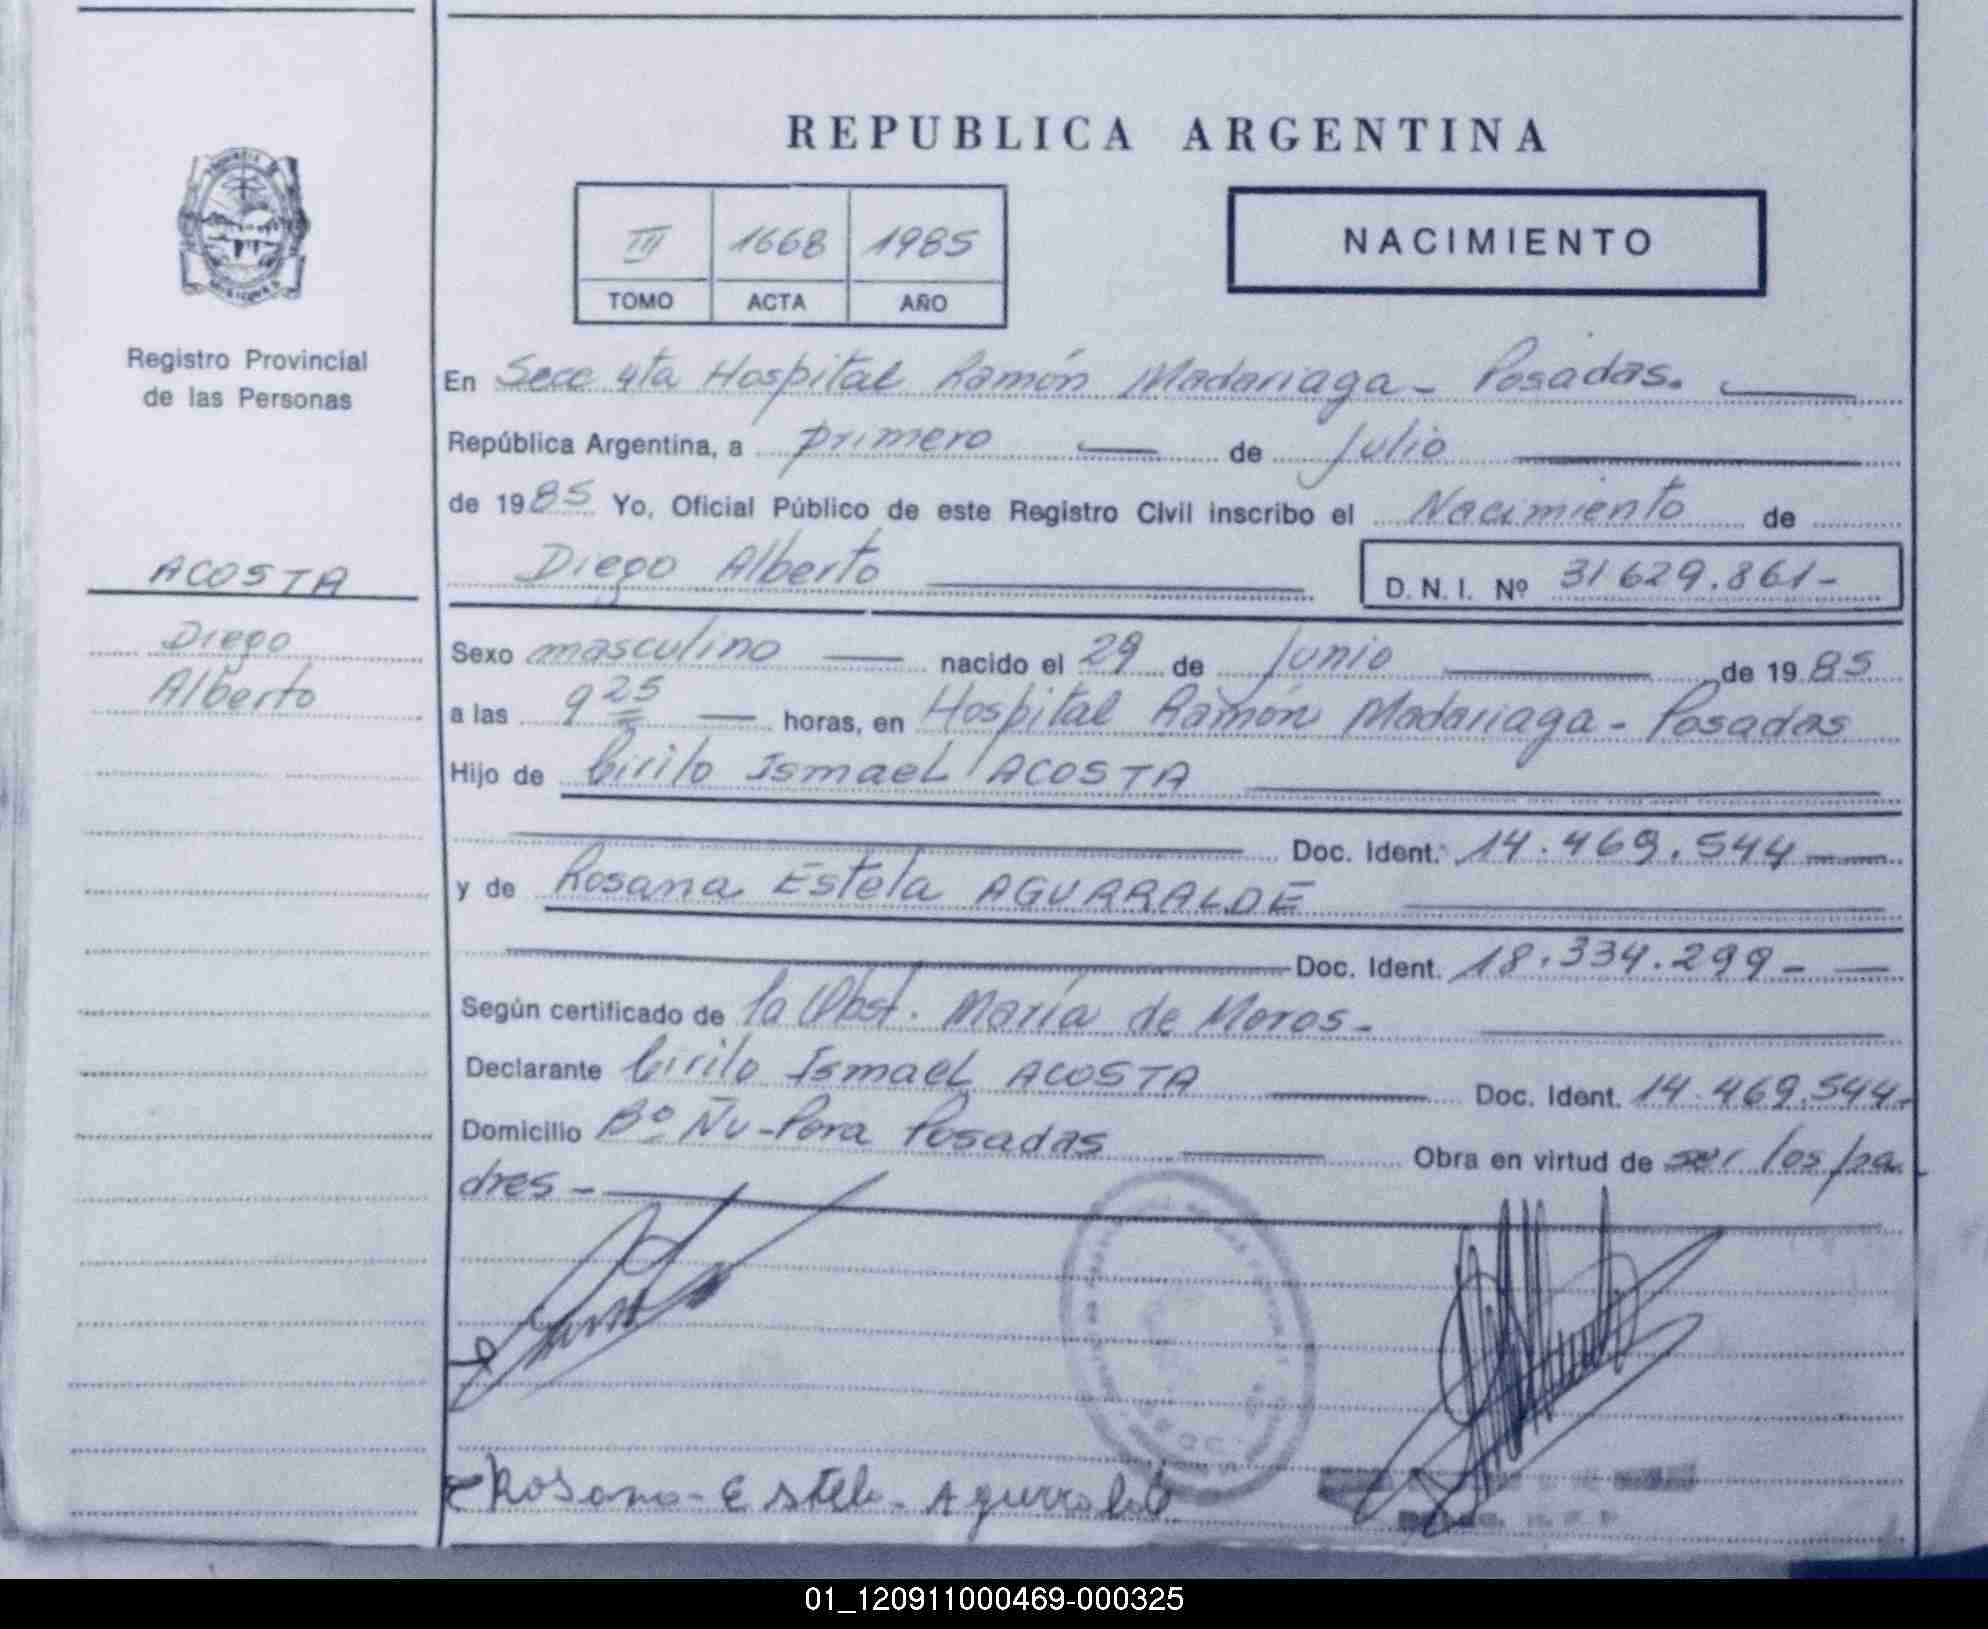 REPUBLICA ARGENTINA
III 1668 1985
TOMO ACTA AÑO
NACIMIENTO
Registro Provincial
de las Personas
ACOSTA
Diego
Alberto
En Secc 4ta Hospital Ramón Madariaga - Posadas.
República Argentina, a primero de Julio
de 1985 Yo, Oficial Público de este Registro Civil inscribo el Nacimiento de
Diego Alberto D. N. I. Nº 31629.861-
Sexo masculino nacido el 29 de Junio de 1985
a las 9 25 horas, en Hospital Ramón Madariaga - Posadas
Hijo de Cirilo Ismael ACOSTA
Doc. Ident. 14.469.544
y de Rosana Estela AGURRALDE
Doc. Ident. 18.334.299-
Según certificado de la Obst. María de Moros-
Declarante Cirilo Ismael ACOSTA Doc. Ident. 14.469.544-
Domicilio Bº Ñu-Pora Posadas Obra en virtud de ser los pa
dres -
Rosana - Estela - Agurralde
01_120911000469-000325